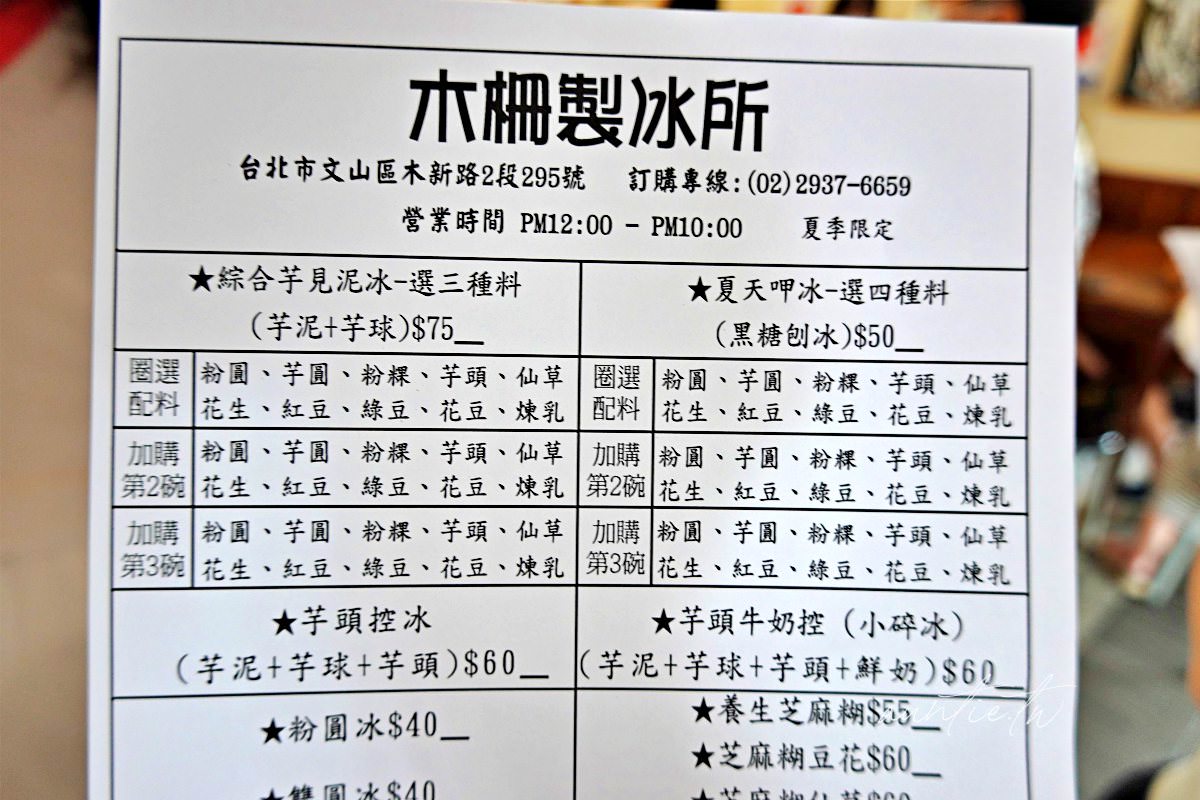 木柵製冰所
台北市文山區木新路2段295號 訂購專線:(02)2937-6659
營業時間 PM12:00 - PM10:00 夏季限定
★綜合芋見泥冰-選三種料
(芋泥+芋球)$75__
★夏天呷冰-選四種料
(黑糖刨冰)$50__
圈選
配料
粉圓、芋圓、粉粿、芋頭、仙草
花生、紅豆、綠豆、花豆、煉乳
圈選
配料
粉圓、芋圓、粉粿、芋頭、仙草
花生、紅豆、綠豆、花豆、煉乳
加購
第2碗
粉圓、芋圓、粉粿、芋頭、仙草
花生、紅豆、綠豆、花豆、煉乳
加購
第2碗
粉圓、芋圓、粉粿、芋頭、仙草
花生、紅豆、綠豆、花豆、煉乳
加購
第3碗
粉圓、芋圓、粉粿、芋頭、仙草
花生、紅豆、綠豆、花豆、煉乳
加購
第3碗
粉圓、芋圓、粉粿、芋頭、仙草
花生、紅豆、綠豆、花豆、煉乳
★芋頭控冰
(芋泥+芋球+芋頭)$60__
★芋頭牛奶控(小碎冰)
(芋泥+芋球+芋頭+鮮奶)$60__
★粉圓冰$40__
★雙圓冰$40
★養生芝麻糊$55__
★芝麻糊豆花$60__
★芝麻糊仙草$60